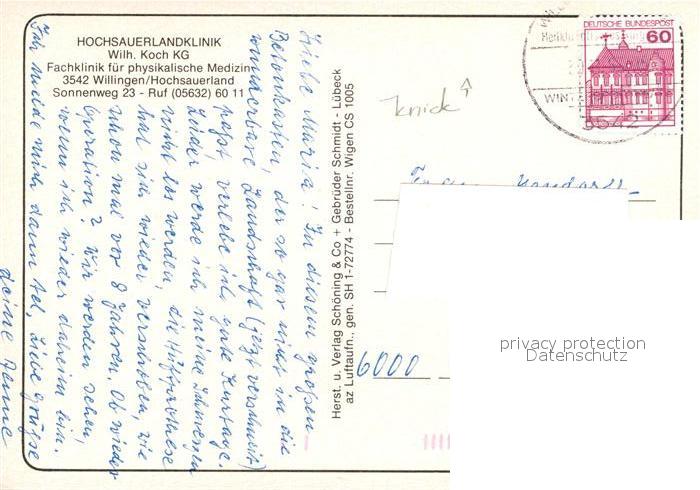 HOCHSAUERLANDKLINIK
Wilh. Koch KG
Fachklinik für physikalische Medizin
3542 Willingen/Hochsauerland
Sonnenweg 23 - Ruf (05632) 60 11
Liebe Maria! In diesem großen
Betonkasten, der so gar nicht in die
wunderbare Landschaft (jetzt verschneit)
paßt verlebe ich gute Kurtage.
Leider werde ich meine Schmerzen
nicht los werden, die Hüftprothese
hat sich wieder verschoben, wie
schon mal vor 8 Jahren. Ob wieder
Operation? Wir werden sehen,
wenn ich wieder daheim bin.
Ich melde mich dann tel. Liebe Grüße
deine
Herst. u. Verlag Schöning & Co + Gebrüder Schmidt - Lübeck
az Luftaufn., gen. SH 1-72774 - Bestellnr. Wigen CS 1005
knick
DEUTSCHE BUNDESPOST
60
WINT
6000
privacy protection
Datenschutz